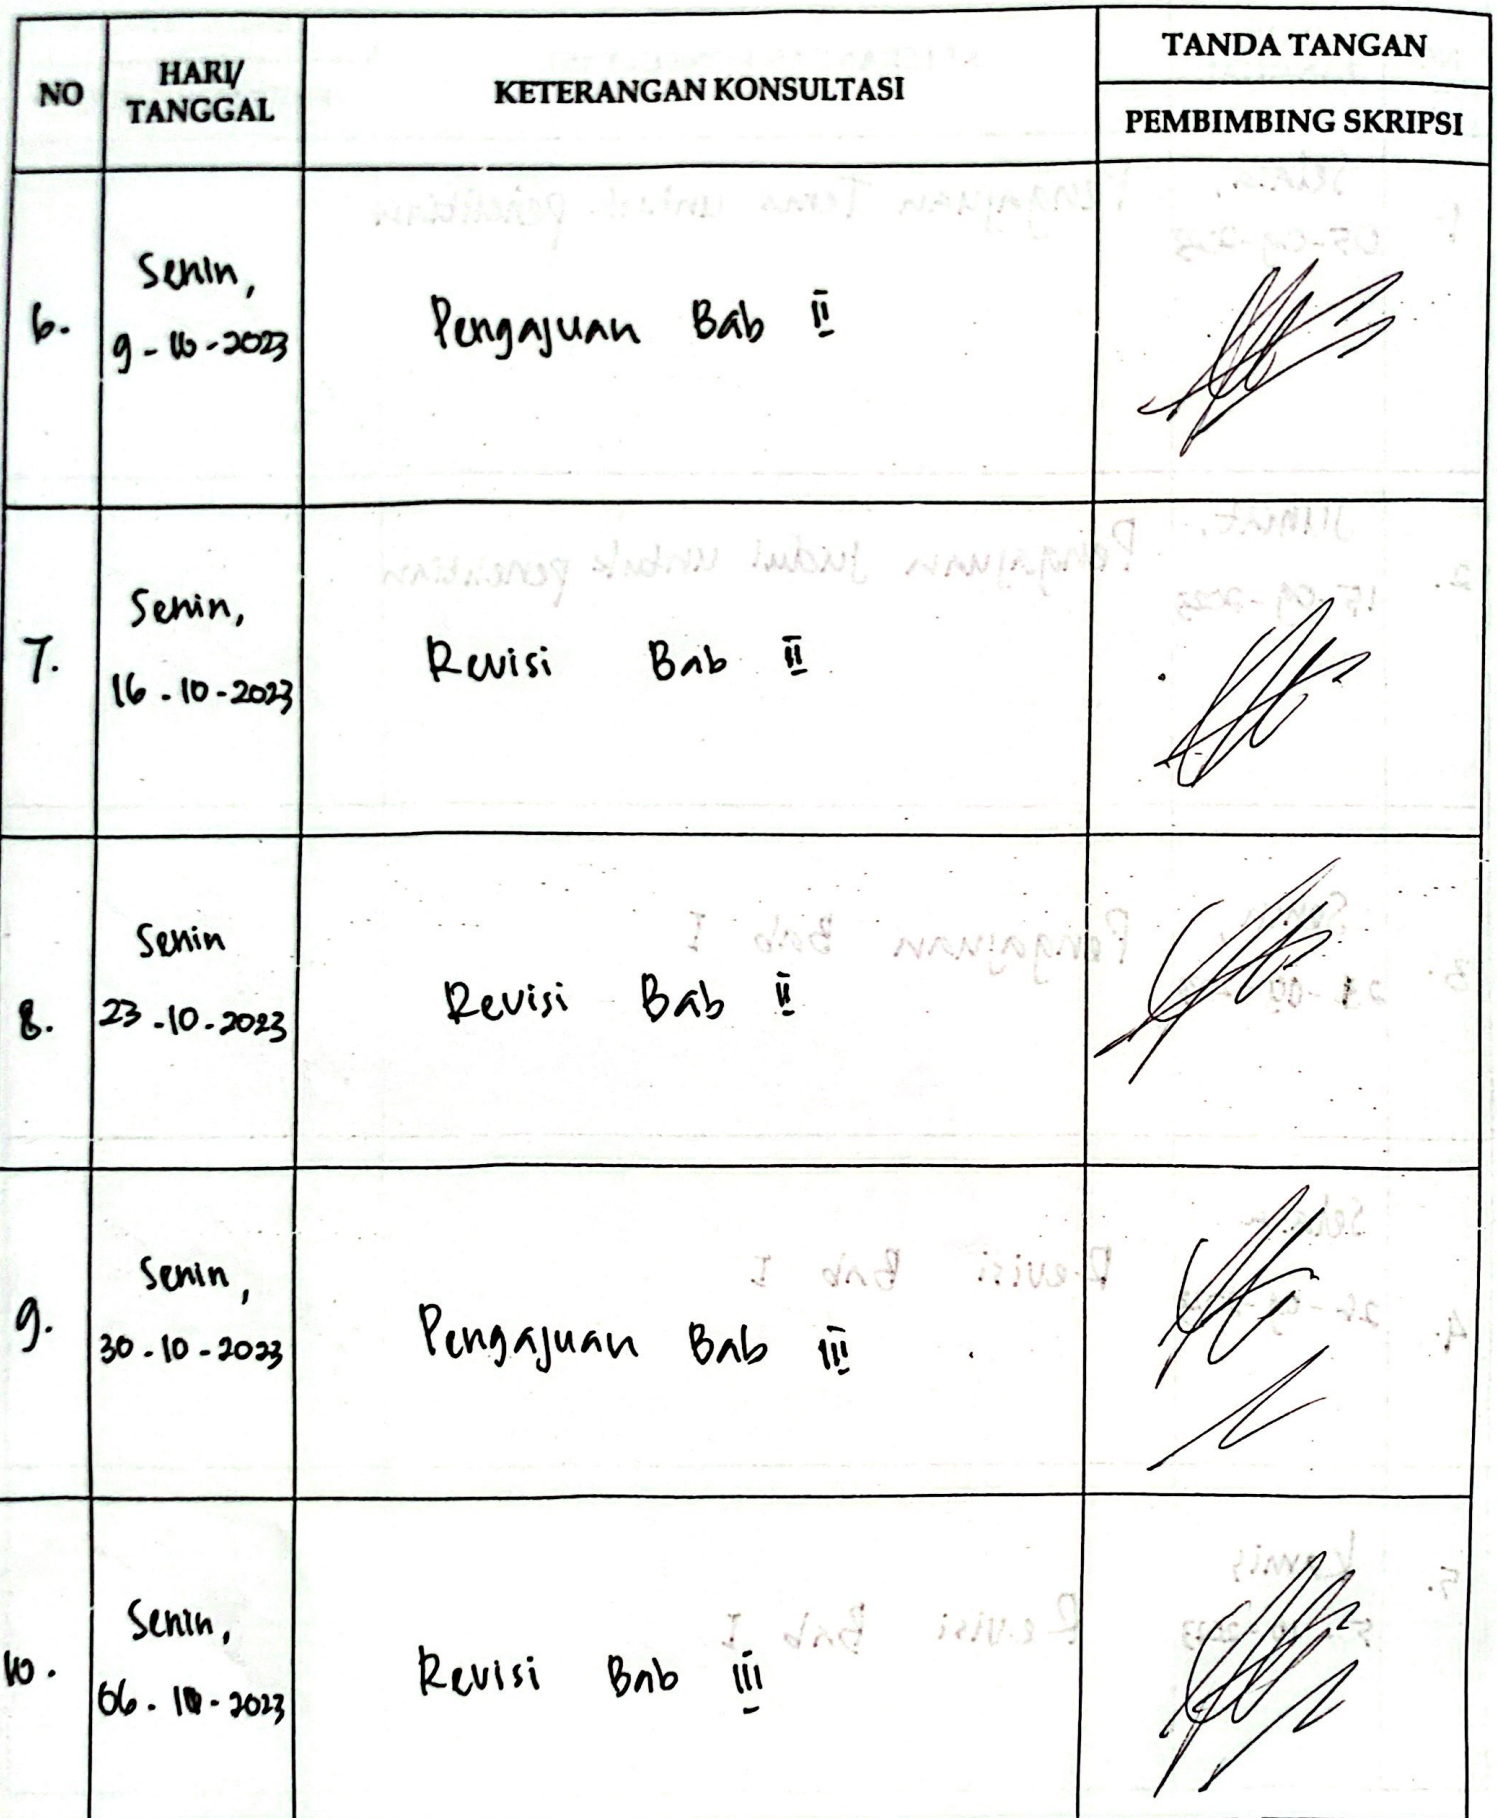 NO
HARI/
TANGGAL
KETERANGAN KONSULTASI
TANDA TANGAN
PEMBIMBING SKRIPSI
6.
Senin,
9-10-2023
Pengajuan Bab II
7.
Senin,
16-10-2023
Revisi Bab II
8.
Senin
23-10-2023
Revisi Bab II
9.
Senin,
30-10-2023
Pengajuan Bab III
10.
Senin,
Revisi Bab III